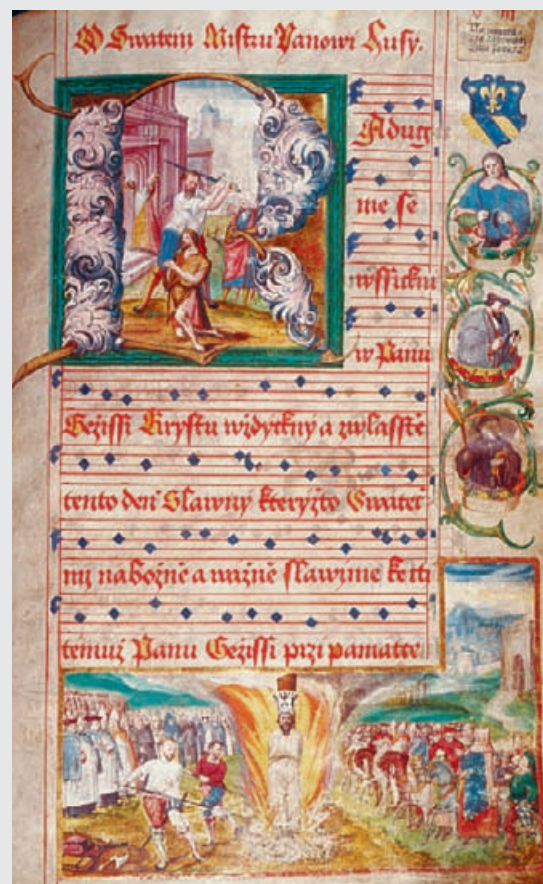 O Swatem Mistru Janowi Husy.
RAdugm
me se
wssickni
w Panu
Gežissi Krystu wždyckny a zwlasstě
tento den Slawny kteryžto Swater
my nabožně a wažně slawjme ke cti
temuž Panu Gežissi przi pamatce